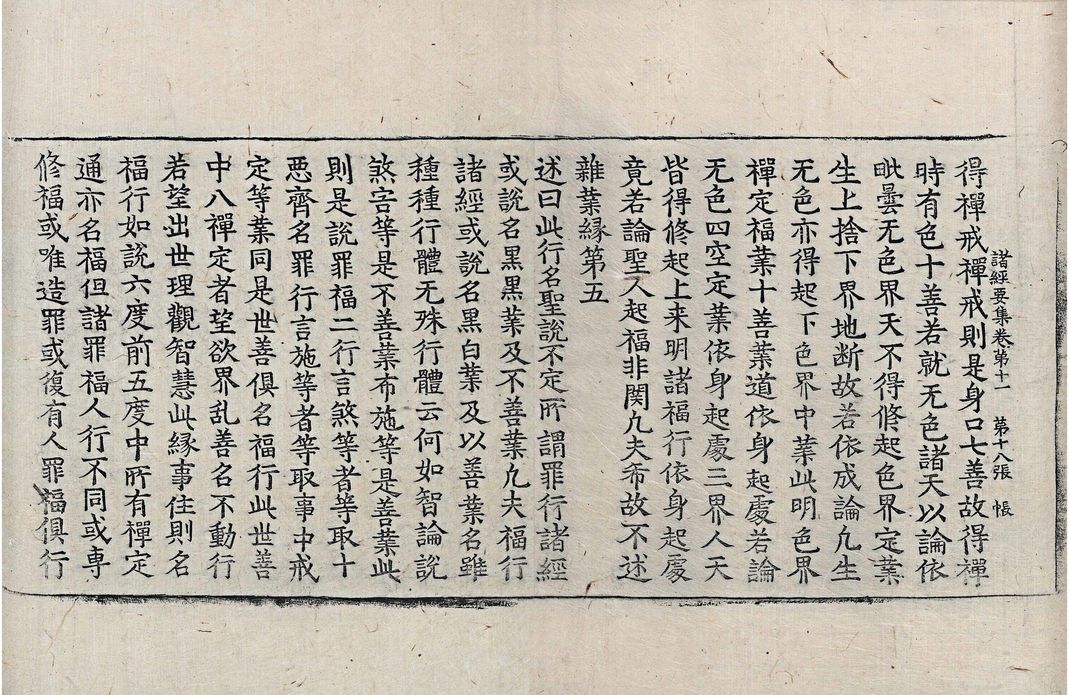 諸經要集卷第十一 第十八張 帳
得禪戒禪戒則是身口七善故得禪
時有色十善若就无色諸天以論依
毗曇无色界天不得修起色界定業
生上捨下界地断故若依成論凢生
无色亦得起下色界中業此明色界
禪定福業十善業道依身起處若論
无色四空定業依身起處三界人天
皆得修起上来明諸福行依身起處
竟若論聖人起福非関凢夫希故不述
雜業縁第五
述曰此行名聖說不定所謂罪行諸經
或說名黒黒業及不善業凢夫福行
諸經或說名黒白業及以善業名雖
種種行體无殊行體云何如智論說
煞害等是不善業布施等是善業此
則是說罪福二行言煞等者等取十
惡齊名罪行言施等者等取事中戒
定等業同是世善俱名福行此世善
中八禪定者望欲界乱善名不動行
若望出世理觀智慧此縁事住則名
福行如說六度前五度中所有禪定
通亦名福但諸罪福人行不同或專
修福或唯造罪或復有人罪福俱行